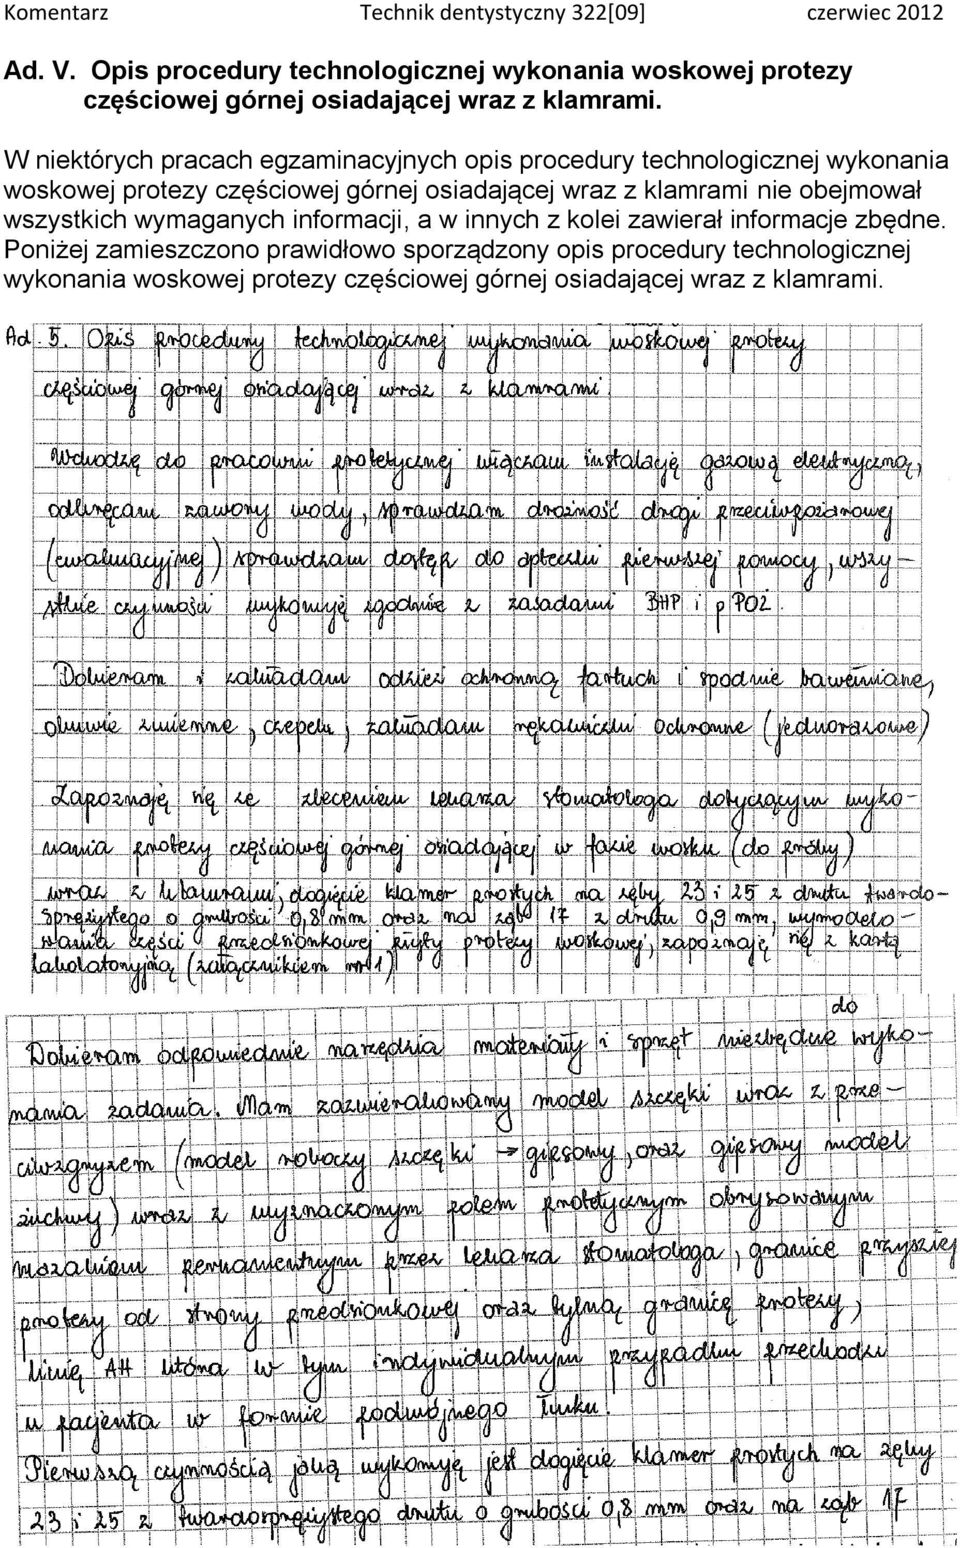 Komentarz Technik dentystyczny 322[09] czerwiec 2012
Ad. V. Opis procedury technologicznej wykonania woskowej protezy
częściowej górnej osiadającej wraz z klamrami.
W niektórych pracach egzaminacyjnych opis procedury technologicznej wykonania
woskowej protezy częściowej górnej osiadającej wraz z klamrami nie obejmował
wszystkich wymaganych informacji, a w innych z kolei zawierał informacje zbędne.
Poniżej zamieszczono prawidłowo sporządzony opis procedury technologicznej
wykonania woskowej protezy częściowej górnej osiadającej wraz z klamrami.
Ad. 5. Opis procedury technologicznej wykonania woskowej protezy
częściowej górnej osiadającej wraz z klamrami.
Wchodzę do pracowni protetycznej włączam instalację gazową elektryczną,
odkręcam zawory wody, sprawdzam drożność drogi przeciwpożarowej
(ewakuacyjnej) sprawdzam dostęp do apteczki pierwszej pomocy, wszy-
stkie czynności wykonuję zgodnie z zasadami BHP i p POŻ.
Dobieram i zakładam odzież ochronną fartuch i spodnie bawełniane,
obuwie zmienne, czepek, zakładam rękawiczki ochronne (jednorazowe)
Zapoznaję się ze zleceniem lekarza stomatologa dotyczącym wyko-
nania protezy częściowej górnej osiadającej w fazie wosku (do próby)
wraz z klamrami, dogięcie klamer prostych na zęby 23 i 25 z drutu twardo-
sprężystego o grubości 0,8 mm oraz na ząb 17 z drutu 0,9 mm, wymodelo-
wania części przedsionkowej płyty protezy woskowej, zapoznaję się z kartą
laboratoryjną (załącznikiem nr 1)
do
Dobieram odpowiednie narzędzia materiały i sprzęt niezbędne wyko-
nania zadania. Mam zazwierakowany model szczęki wraz z prze-
ciwzgryzem (model roboczy szczęki → gipsowy, oraz gipsowy model
żuchwy) wraz z wyznaczonym polem protetycznym obrysowanym
mazakiem permanentnym przez lekarza stomatologa, granice przyszłej
protezy od strony przedsionkowej oraz tylną granicę protezy,
linię AH która w tym indywidualnym przypadku przechodzi
u pacjenta w formie podwójnego łuku.
Pierwszą czynnością jaką wykonuję jest dogięcie klamer prostych na zęby
23 i 25 z twardosprężystego drutu o grubości 0,8 mm oraz na ząb 17